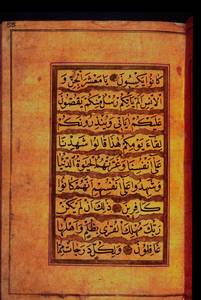 كانوا يكسبون يا معشر الجن و
الانس الم ياتكم رسل منكم يقصون
عليكم آياتي وينذرونكم
لقاء يومكم هذا قالوا شهدنا
على انفسنا وغرتهم الحيوة الدنيا
وشهدوا على انفسهم انهم كانوا
كافرين ذلك ان لم يكن
ربك مهلك القرى بظلم واهلها
غافلون ولكل درجات مما